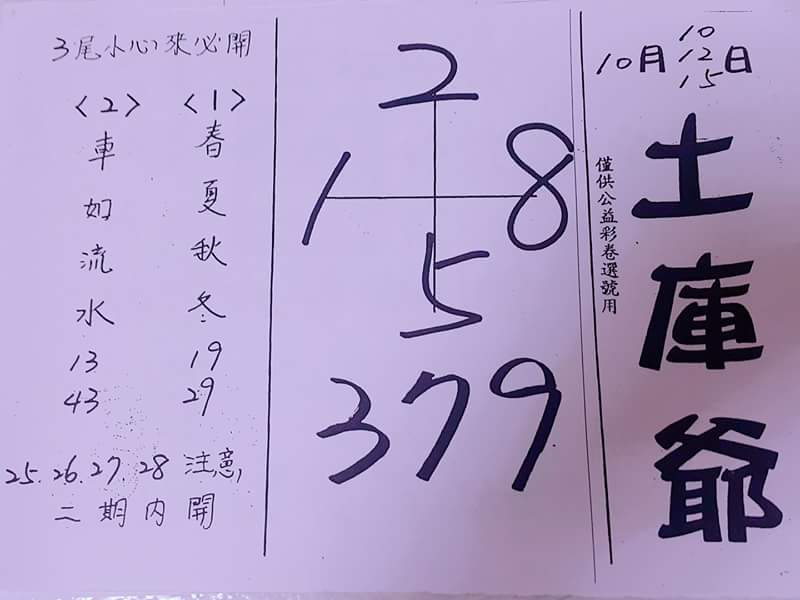 10月 10 12 15 日
土庫爺
僅供公益彩卷選號用
2
1 8
5
379
3尾小心張必開
〈1〉
春夏秋冬
19
29
〈2〉
車如流水
13
43
25.26.27.28 注意,
二期內開